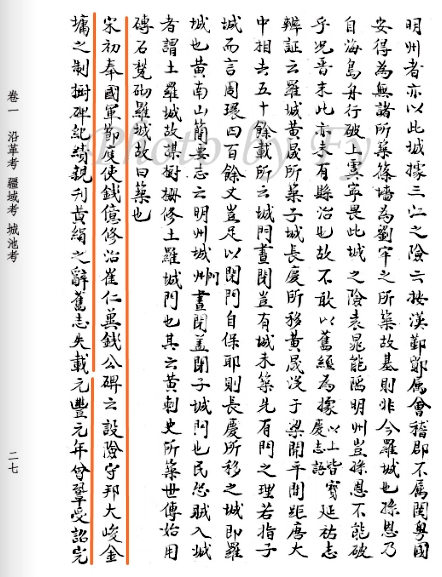 明州者亦以此城據三江之險云按漢鄞鄮屬會稽郡不屬閩粵國
安得為無諸所築篠墻為劉牢之所築故基則非今羅城也孫恩乃
自海島舟行破上虞寧畏此城之險袁晁能陷明州豈孫恩不能破
乎況晉末此亦未有縣治也故不敢以舊經為據以上皆寶慶志語延祐志
辨証云羅城黃晟所築子城長慶所移黃晟沒于梁開平間距唐大
中相去五十餘載所云城門晝閉豈有城未築先有門之理若指子
城而言周環四百餘丈豈足以閉門自保耶則長慶所移之城即羅
城也黃南山簡要志云明州城門晝閉蓋閉子城門也民恐賊入城
者謂土羅城故某樹柵修土羅城門也其云黃刺史所築世傳始用
磚石甃砌羅城故曰築也
宋初奉國軍節度使錢億修治崔仁冀錢公碑云設險守邦大峻金
墉之制樹碑紀績親刊黃絹之辭舊志失載元豐元年曾鞏受詔完
卷一 沿革考 疆域考 城池考
二七
Photo by Fy